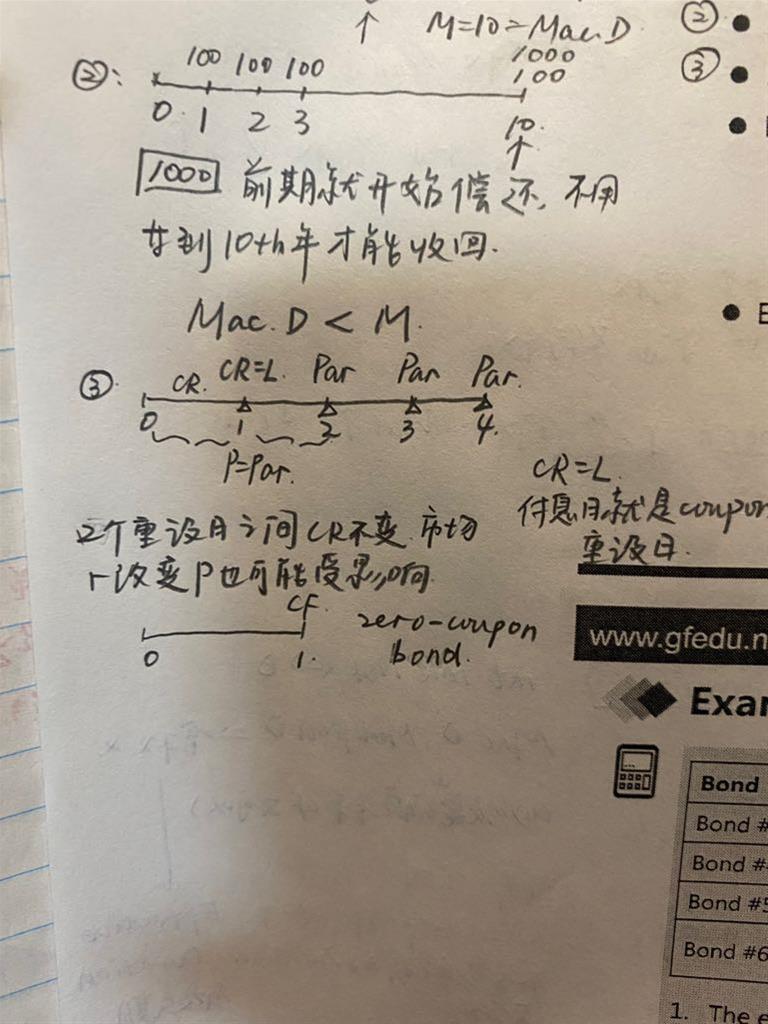 M=10=Mac.D
②
③
②:
100 100 100
1000
100
0 1 2 3
10.
1000 前期就开始偿还,不用
等到10th年才能收回.
Mac.D < M.
③. CR. CR=L. Par Par Par.
0 1 2 3 4.
P=Par.
CR=L.
付息日就是coupon
重设日.
2个重设日之间CR不变.市场
r改变P也可能受影响.
CF.
0 1.
zero-coupon
bond.
www.gfedu.n
Exar
Bond
Bond #
Bond #
Bond #5
Bond #6
1. The e